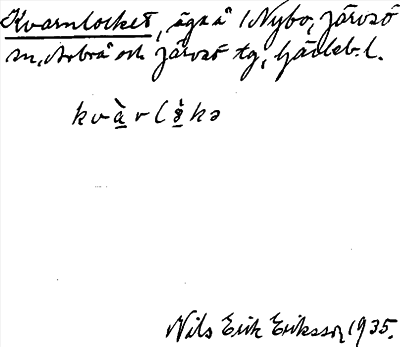 Kvarnlocket, äga å i Nybo, Järvsö
sn, Arbrå och Järvsö tg, Gävleb. l.
kvàrlòkə
Nils Erik Eriksson, 1935.